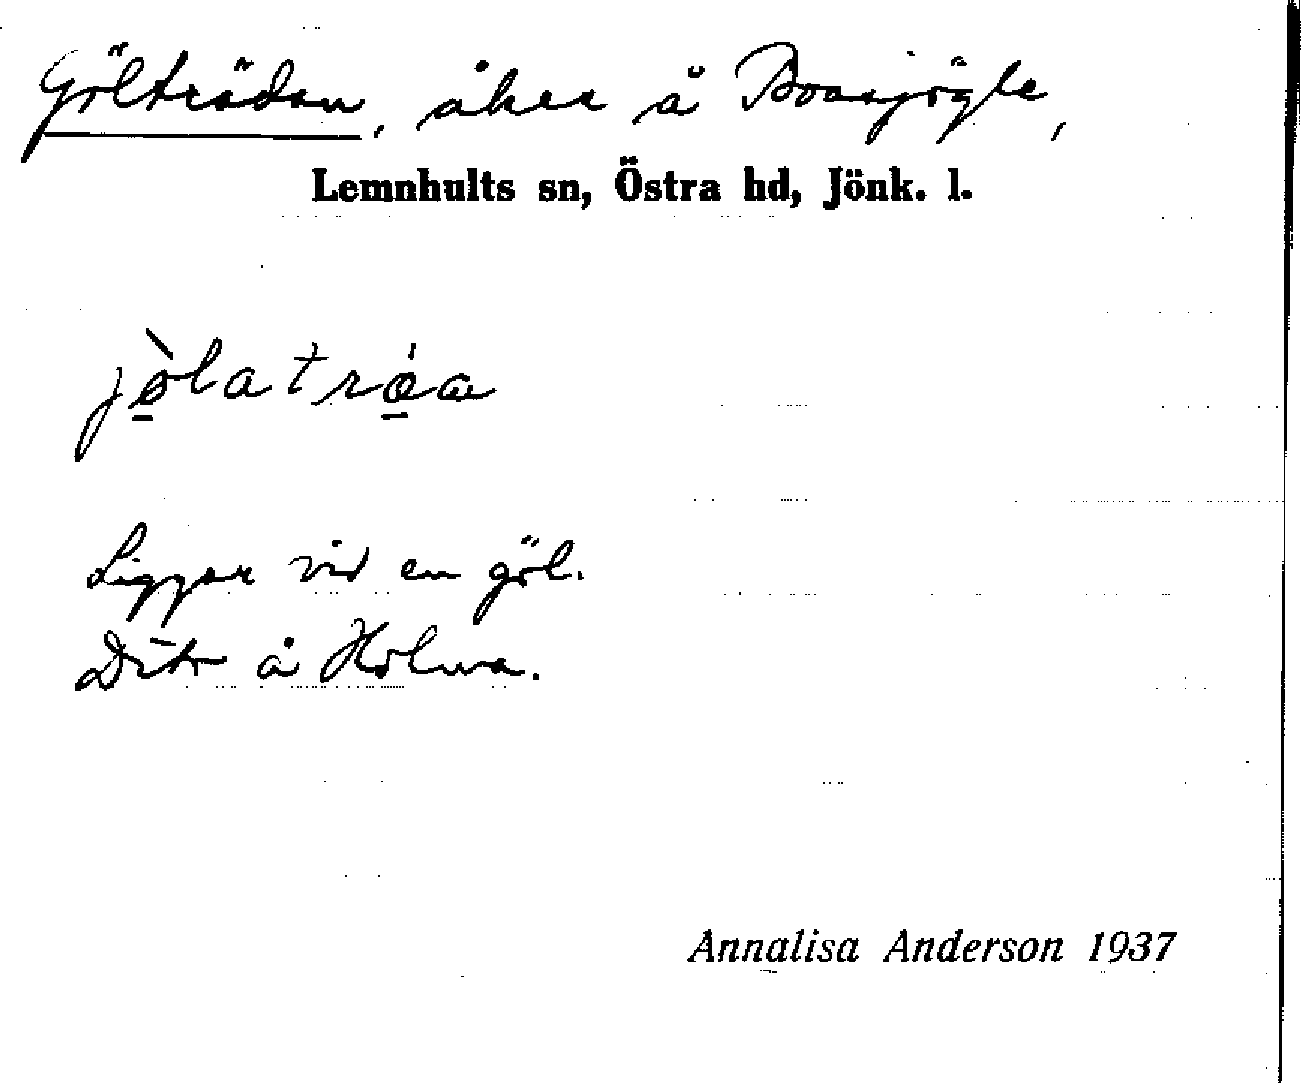 Gölträdan, åker å Boasjögle,
Lemnhults sn, Östra hd, Jönk. l.
jòlatráa
Ligger vid en göl.
Dito å Holma.
Annalisa Anderson 1937